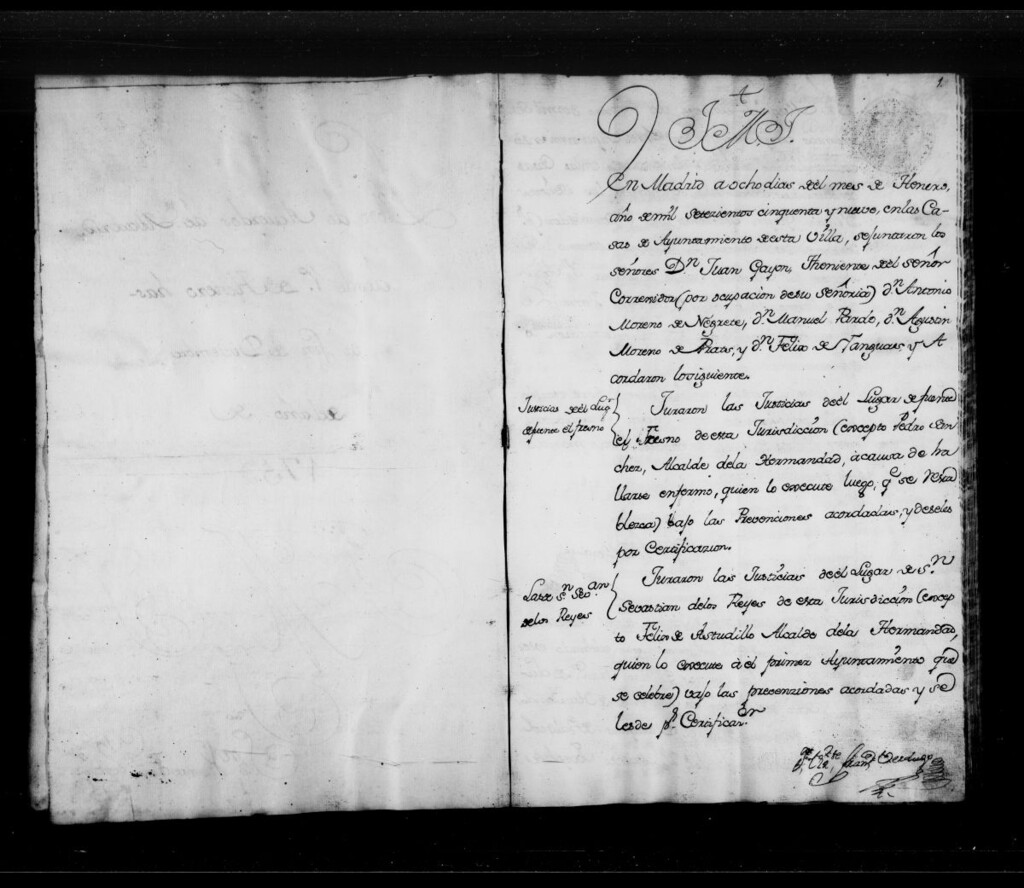 1
J M J.
En Madrid a ocho dias del mes de Henero,
año de mil setezientos cinquenta y nueve, en las Ca-
sas de Ayuntamiento de esta Villa, se juntaron los
señores D.n Juan Gayon, Theniente del señor
Correxidor (por ocupacion de su señoria) d.n Antonio
Moreno de Negrete, d.n Manuel Pardo, d.n Agustin
Moreno de Prats, y d.n Felix de Yanguas y A
cordaron lo siguiente.
Justicias de el Lug.r
de fuente el fresno
Juraron las Justicias de el Lugar de fuente
el Fresno de esta Jurisdiccion (excepto Pedro San-
chez, Alcalde dela Hermandad, à causa de ha
llarse enfermo, quien lo execute luego, q.e se resta
blezca) bajo las Prevenciones acordadas, y deseles
por Certificazion.
Las de S.n Seb.an
delos Reyes
Juraron las Justicias de el Lugar de S.n
Sebastian delos Reyes de esta Jurisdiccion (excep-
to Felix de Astudillo Alcalde dela Hermandad,
quien lo execute à el primer Ayuntamiento que
se celebre) vajo las prevenziones acordadas y de
lesde p.r Certificaz.on